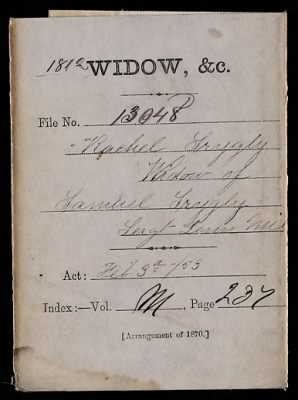 1812 WIDOW, &c.
File No. 13048
Rachel
Widow of
Samuel
Sergt Tenn Mil
Act: Feb 3d 1853
Index:—Vol. M, Page 237
[Arrangement of 1870.]